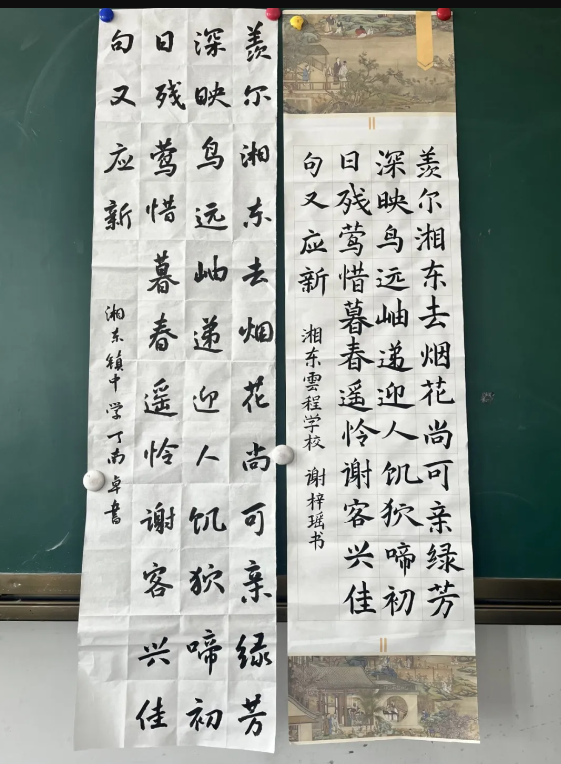 羡尔湘东去烟花尚可亲绿芳
深映鸟远岫递迎人饥狖啼初
日残莺惜暮春遥怜谢客兴佳
句又应新
湘东雲程学校 谢梓瑶书
羡尔湘东去烟花尚可亲绿芳
深映鸟远岫递迎人饥狖啼初
日残莺惜暮春遥怜谢客兴佳
句又应新
湘东镇中学丁南卓書